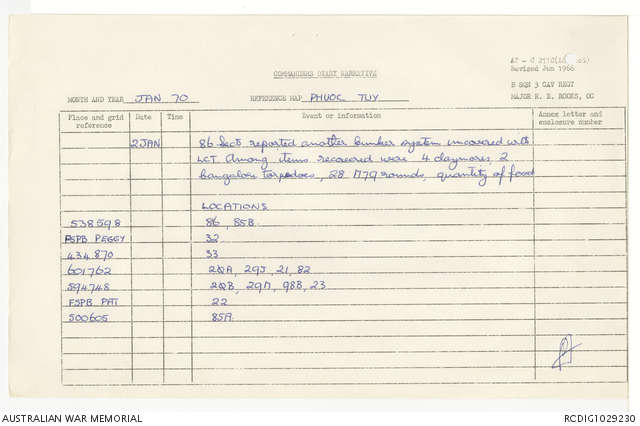 COMMANDERS DIARY NARRATIVE
Revised Jun 1966
B SQN 3 CAV REGT
MAJOR R. E. ROOKS, OC
MONTH AND YEAR JAN 70 REFERENCE MAP PHUOC TUY
Place and grid reference Date Time Event or information Annex letter and enclosure number
2 JAN 86 Sect reported another bunker system uncovered with
LCT. Among items recovered were 4 claymores, 2
bangalore torpedoes, 28 M79 rounds, quantity of food
LOCATIONS
538598 86, 85B
FSPB PEGGY 32
434870 33
601762 2QA, 29J, 21, 82
594748 2QB, 29A, 98B, 23
FSPB PAT 22
500605 85A
AUSTRALIAN WAR MEMORIAL RCDIG1029230